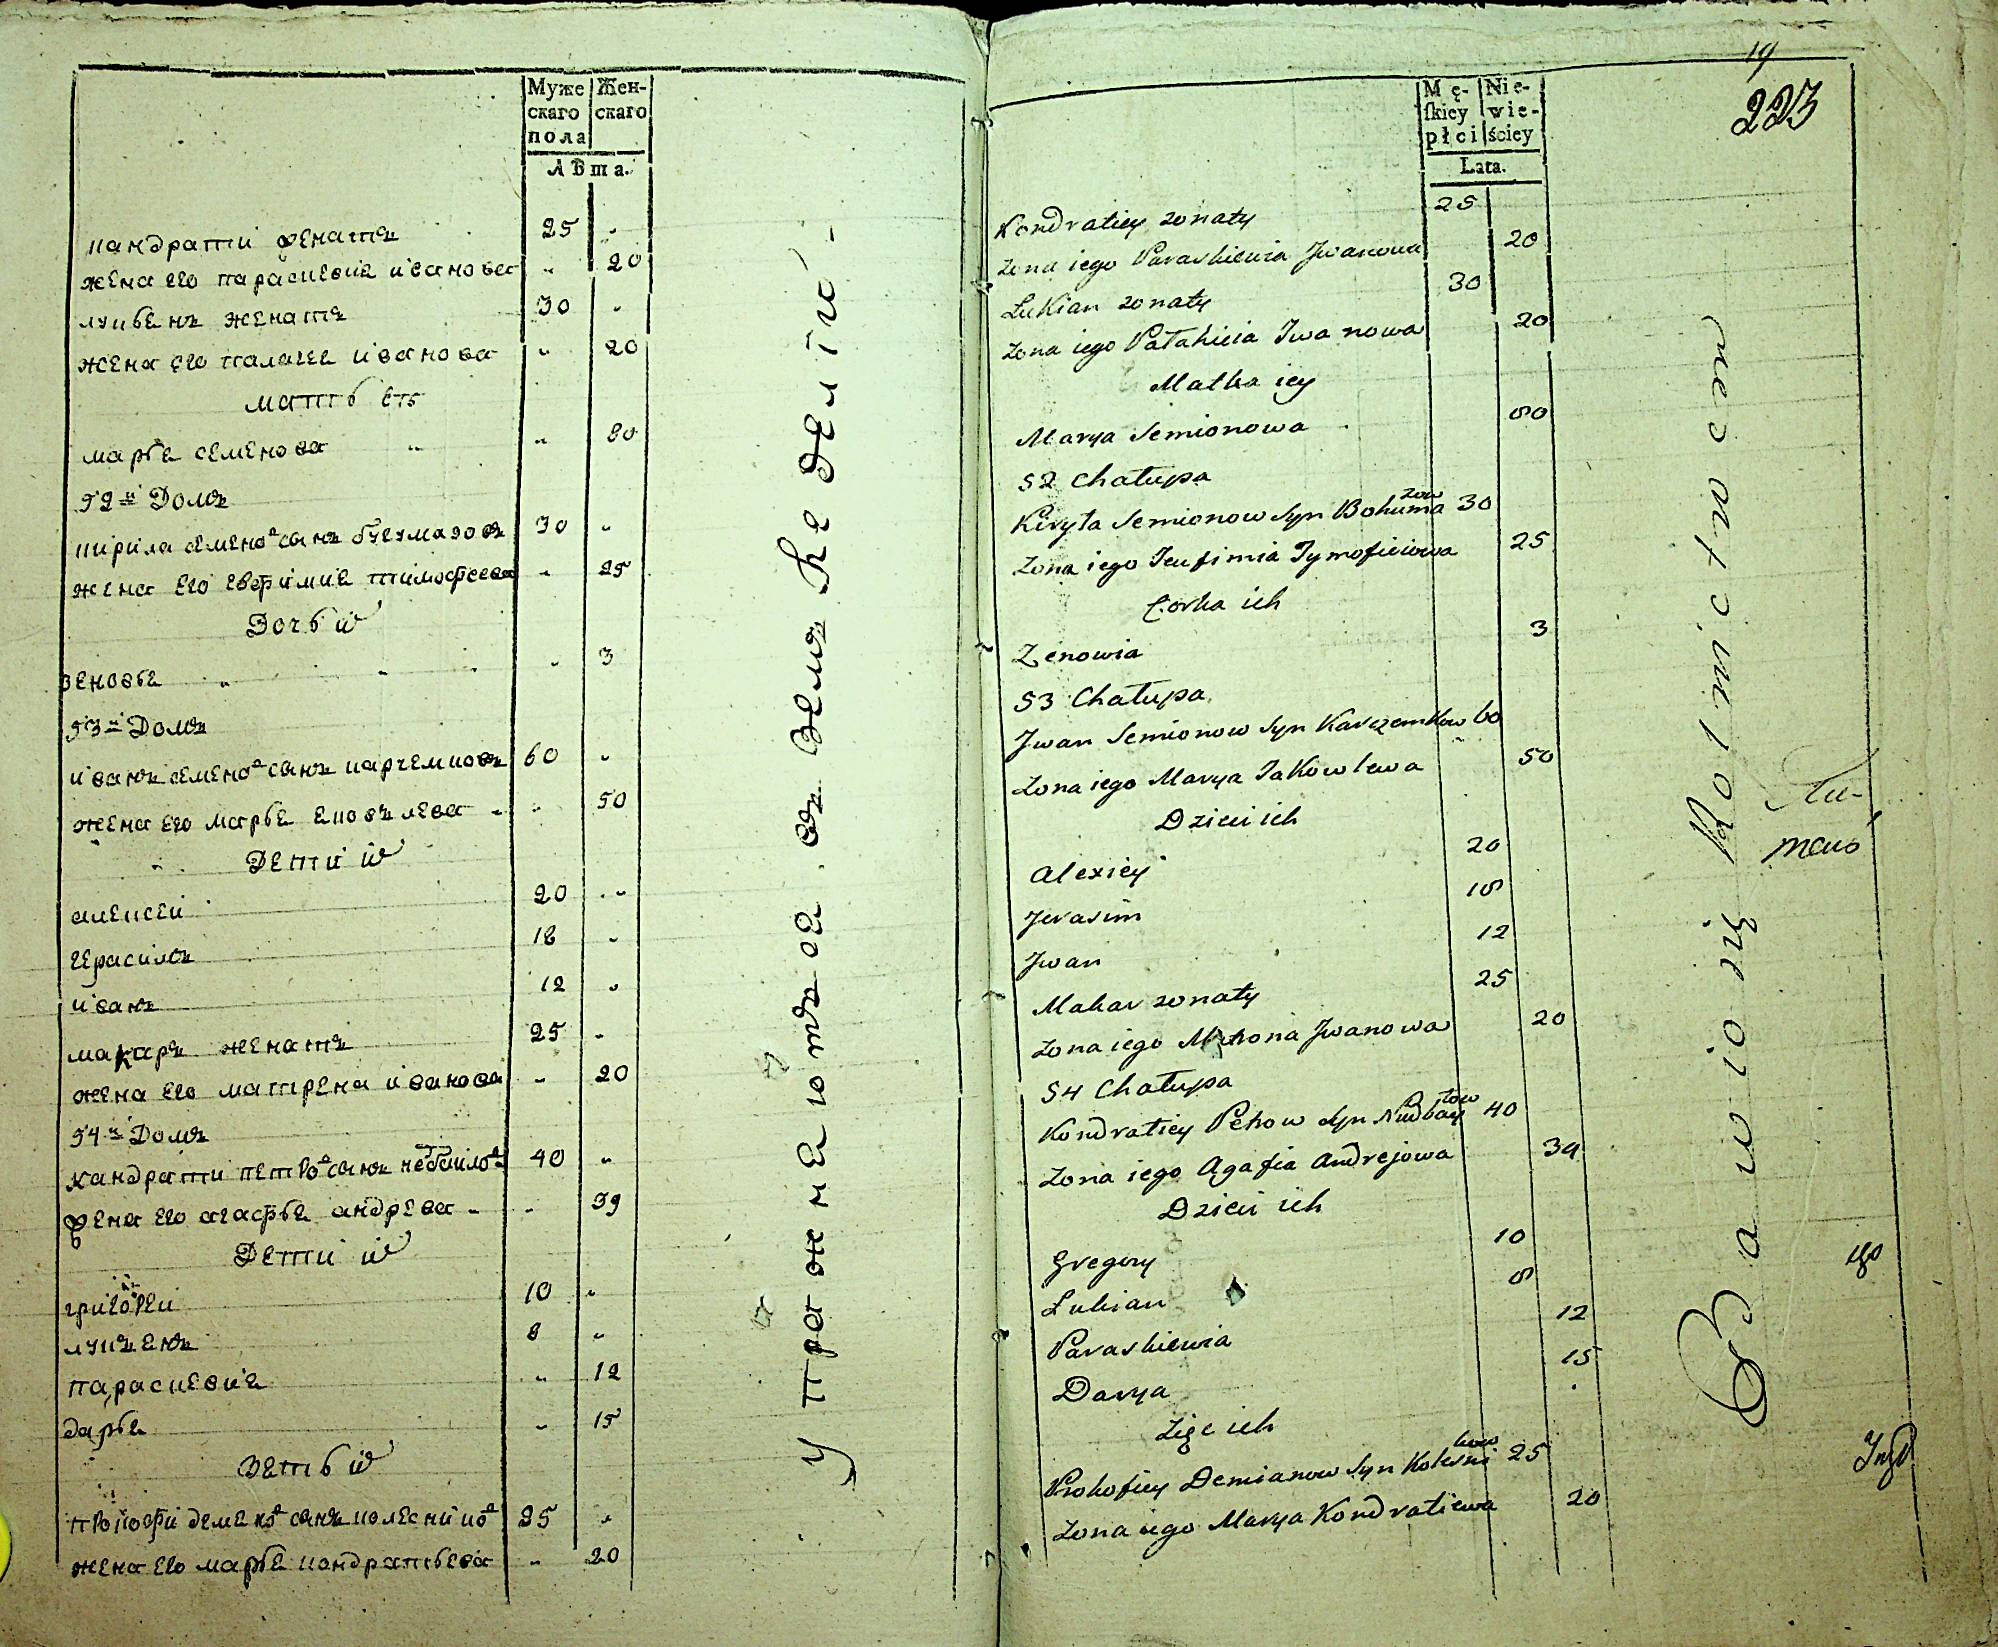 Муже Жен-
скаго скаго
пола
лѣта.
кандрати женатъ 25 „
жена его параскевие иванова „ 20
лукьенъ женатъ 30 „
жена его палагее иванова „ 20
мать его
марье семенова „ „ 80
52-й Домъ
кирила семеновъ сынъ бугумазовъ 30 „
жена его евфимие тимофеева „ 25
Дочь их
зеновье „ „ „ „ 3
53-й Домъ
иванъ семеновъ сынъ карчемковъ 60 „
жена его марье ековълева „ „ 50
Дети их
алексеи 20 „
герасимъ 18 „
иванъ 12 „
макаръ женатъ 25 „
жена его матрена иванова „ 20
54-й Домъ
кандрати петровъ сынъ 40 „
жена его агафье андрева „ „ 39
Дети их
григореи 10 „
лукъенъ 8 „
параскевие „ 12
дарье „ 15
Зеть их
прокофи деменовъ сынъ колесниковъ 25 „
жена его марье кондратьева „ 20
Упражнеютъца въ земледелiи
19
223
Mę- Nie-
skiey wie-
płci ściey
Lata.
Kondratiey zonaty 25
zona iego Paraskiewia Jwanowa 20
Łukian zonaty 30
zona iego Pałahieia Iwanowa 20
Matka iey
Marya Semionowa 80
52 Chałupa
Kiryła Semionow syn Bohumazow 30
Zona iego Ieufimia Tymofieiowa 25
Corka ich
Zenowia 3
53 Chałupa
Jwan Semionow syn Karczemkow 60
Zona iego Marya Jakowlewa 50
Dzieci ich
Alexiey 20
Jerasim 18
Jwan 12
Makar zonaty 25
zona iego Matrona Jwanowa 20
54 Chałupa
Kondratiey Petrow syn 40
Zona iego Agafia Andrejowa 39
Dzieci ich
Gregory 10
Łukian 8
Paraskiewia 12
Darya 15
Zięc ich
Prokofiey Demianow syn Kolesnikow 25
Zona iego Marya Kondratiewa 20
Bawio się Rolnictwem